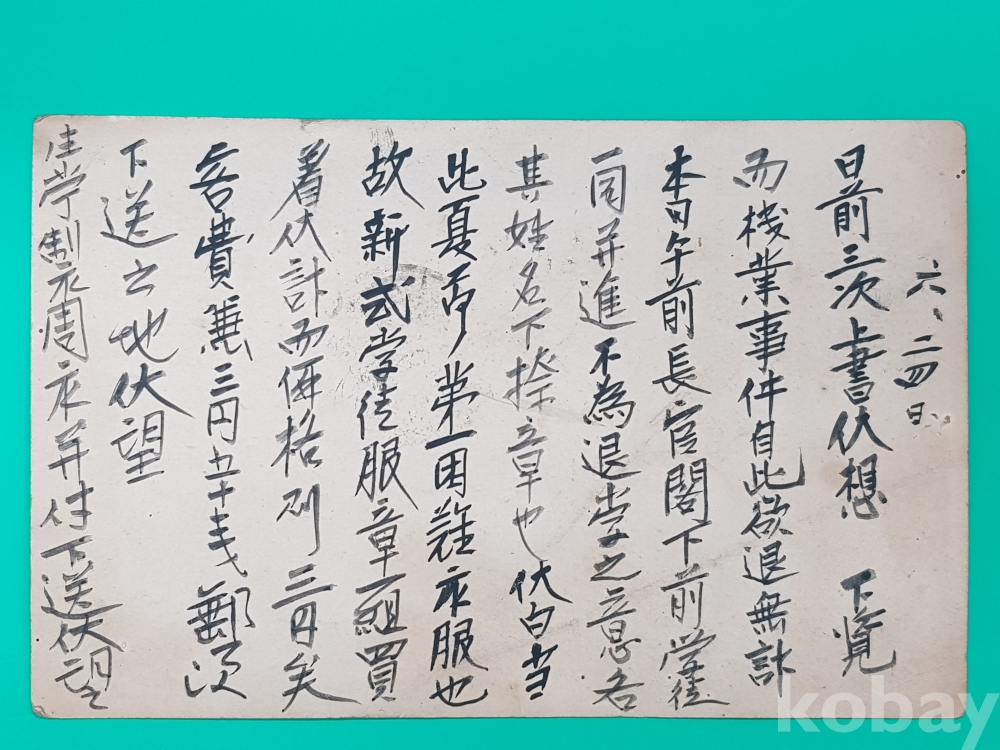 六、二四日
日前三次上書伏想 下覽
而機業事件自此欲退無計
本日午前長官閣下前学徒
一同并進不為退学之意各
其姓名下捺章也伏白当
此夏节第一困難衣服也
故新式学徒服章一組買
着伏計而価格則三円矣
三円五十戋郵次
下送之地伏望
制衣周衣并付下送伏望
kobay